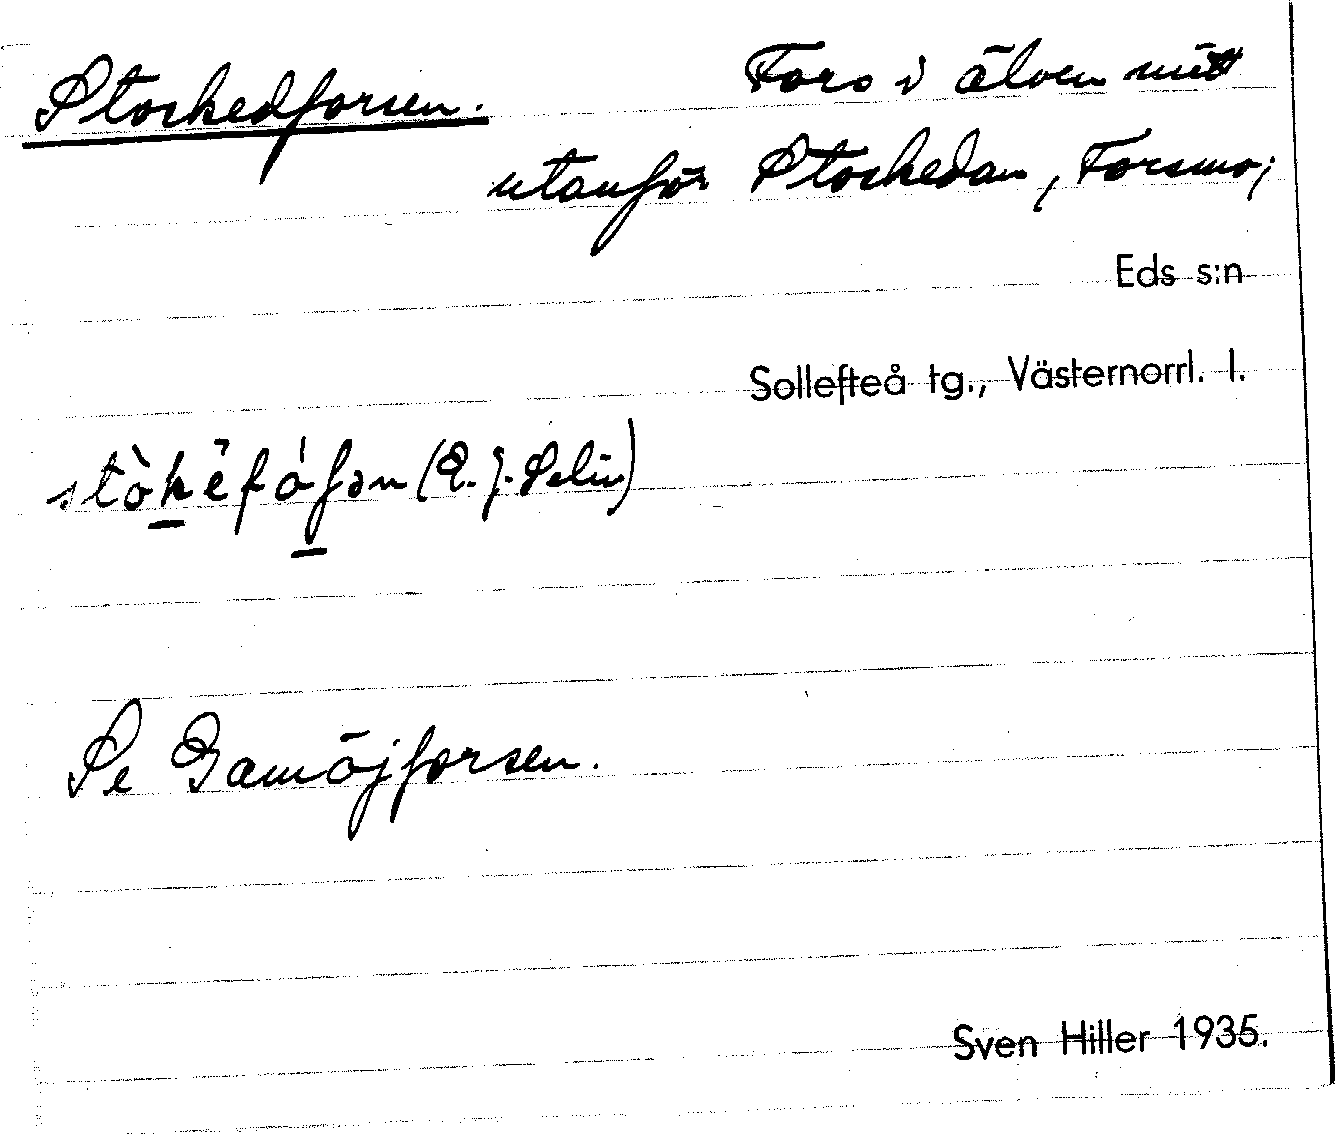 Stockedforsen. Fors i älven mitt
utanför Stockedan, Forsmo;
Eds s:n
Sollefteå tg., Västernorrl. l.
(E. J. Selin)
Se Gamöjforsen.
Sven Hiller 1935.